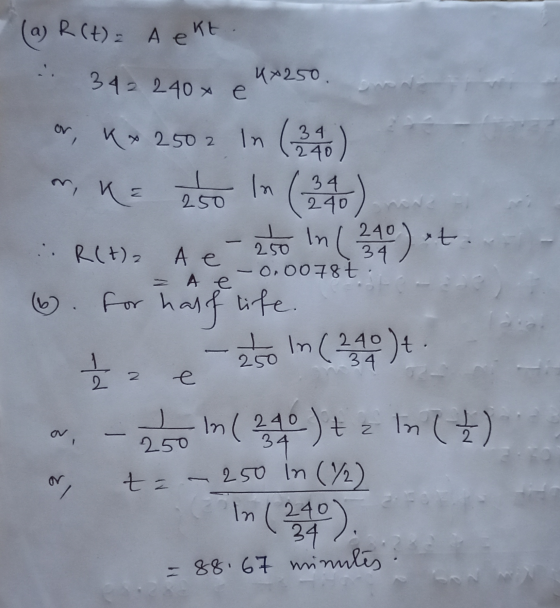 (a) R(t) = A e^{Kt}.
∴ 34 = 240 × e^{K×250}.
or, K × 250 = ln (34/240)
or, K = 1/250 ln (34/240)
∴ R(t) = A e^{- 1/250 ln (240/34) × t}.
= A e^{-0.0078t}.
(b). For half life.
1/2 = e^{- 1/250 ln (240/34) t}.
or, - 1/250 ln (240/34) t = ln (1/2)
or, t = - 250 ln (1/2) / ln (240/34).
= 88.67 minutes.